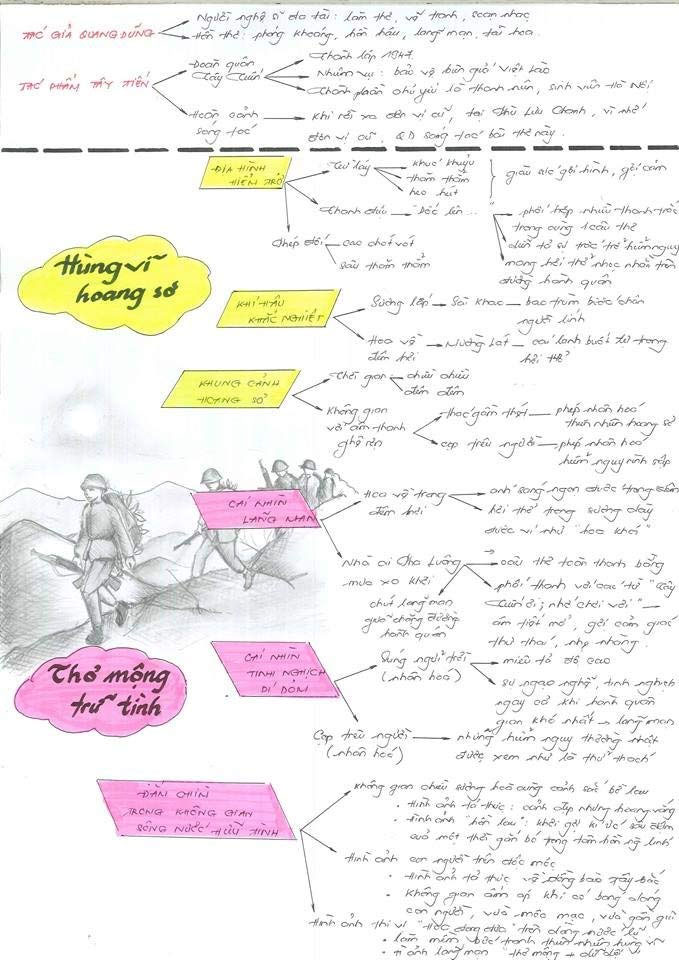 TÁC GIẢ QUANG DŨNG
Người nghệ sĩ đa tài: làm thơ, vẽ tranh, soạn nhạc
Hồn thơ: phóng khoáng, hồn hậu, lãng mạn, tài hoa.
TÁC PHẨM TÂY TIẾN
Đoàn quân
Tây Tiến
Thành lập 1947.
Nhiệm vụ: bảo vệ biên giới Việt Lào
Thành phần chủ yếu là thanh niên, sinh viên Hà Nội
Hoàn cảnh
sáng tác
Khi rời xa đơn vị cũ, tại Phù Lưu Chanh, vì nhớ
đơn vị cũ, QD sáng tác bài thơ này.
Hùng vĩ
hoang sơ
ĐỊA HÌNH
HIỂM TRỞ
Từ láy
khúc khuỷu
thăm thẳm
heo hút
giàu sức gợi hình, gợi cảm
Thanh điệu
"Dốc lên..."
phối hợp nhiều thanh trắc
trong cùng 1 câu thơ
diễn tả sự trắc trở hiểm nguy
mang hơi thở nhọc nhằn trên
đường hành quân
Phép đối
cao chót vót
sâu thăm thẳm
KHÍ HẬU
KHẮC NGHIỆT
Sương lấp
Sài Khao
bao trùm bước chân
người lính
Hoa về
đêm hơi
Mường Lát
cái lạnh buốt từ trong
hơi thở
KHUNG CẢNH
HOANG SƠ
Thời gian
chiều chiều
đêm đêm
Không gian
với âm thanh
ghê rợn
thác gầm thét
phép nhân hoá
thiên nhiên hoang sơ
cọp trêu người
phép nhân hoá
hiểm nguy rình rập
Thơ mộng
trữ tình
CÁI NHÌN
LÃNG MẠN
Hoa về trong
đêm hơi
ánh sáng ngọn đuốc trong đêm
hơi thở trong sương dày
được ví như "hoa khói"
Nhà ai Pha Luông
mưa xa khơi
chút lãng mạn
giữa chặng đường
hành quân
câu thơ toàn thanh bằng
phối thanh với các từ "Tây
Tiến ơi; nhớ chơi với"
âm tiết mở, gợi cảm giác
thư thái, nhẹ nhàng.
CÁI NHÌN
TINH NGHỊCH
DÍ DỎM
Súng ngửi trời
(nhân hoá)
miêu tả độ cao
sự ngạo nghễ, tinh nghịch
ngay cả khi hành quân
gian khổ nhất → lãng mạn
Cọp trêu người
(nhân hoá)
những hiểm nguy thường nhật
được xem như là thử thách
ĐẮM CHÌM
TRONG KHÔNG GIAN
SÔNG NƯỚC HỮU TÌNH
Không gian chiều sương hoà cùng cảnh sắc bờ lau
• Hình ảnh tả thực: cảnh đẹp nhưng hoang vắng
• Hình ảnh "hồn lau": khơi gợi kí ức sâu đậm
của một thời gắn bó trong tâm hồn ng lính
Hình ảnh con người trên độc mộc
• Hình ảnh tả thực về đồng bào Tây Bắc
• Không gian ấm áp khi có bóng dáng
con người, vừa mộc mạc, vừa gần gũi
Hình ảnh thi vị "Hoa đong đưa" trên dòng nước lũ
• làm mềm bức tranh thiên nhiên hùng vĩ
ảnh lãng mạn "thơ mộng + dữ dội"